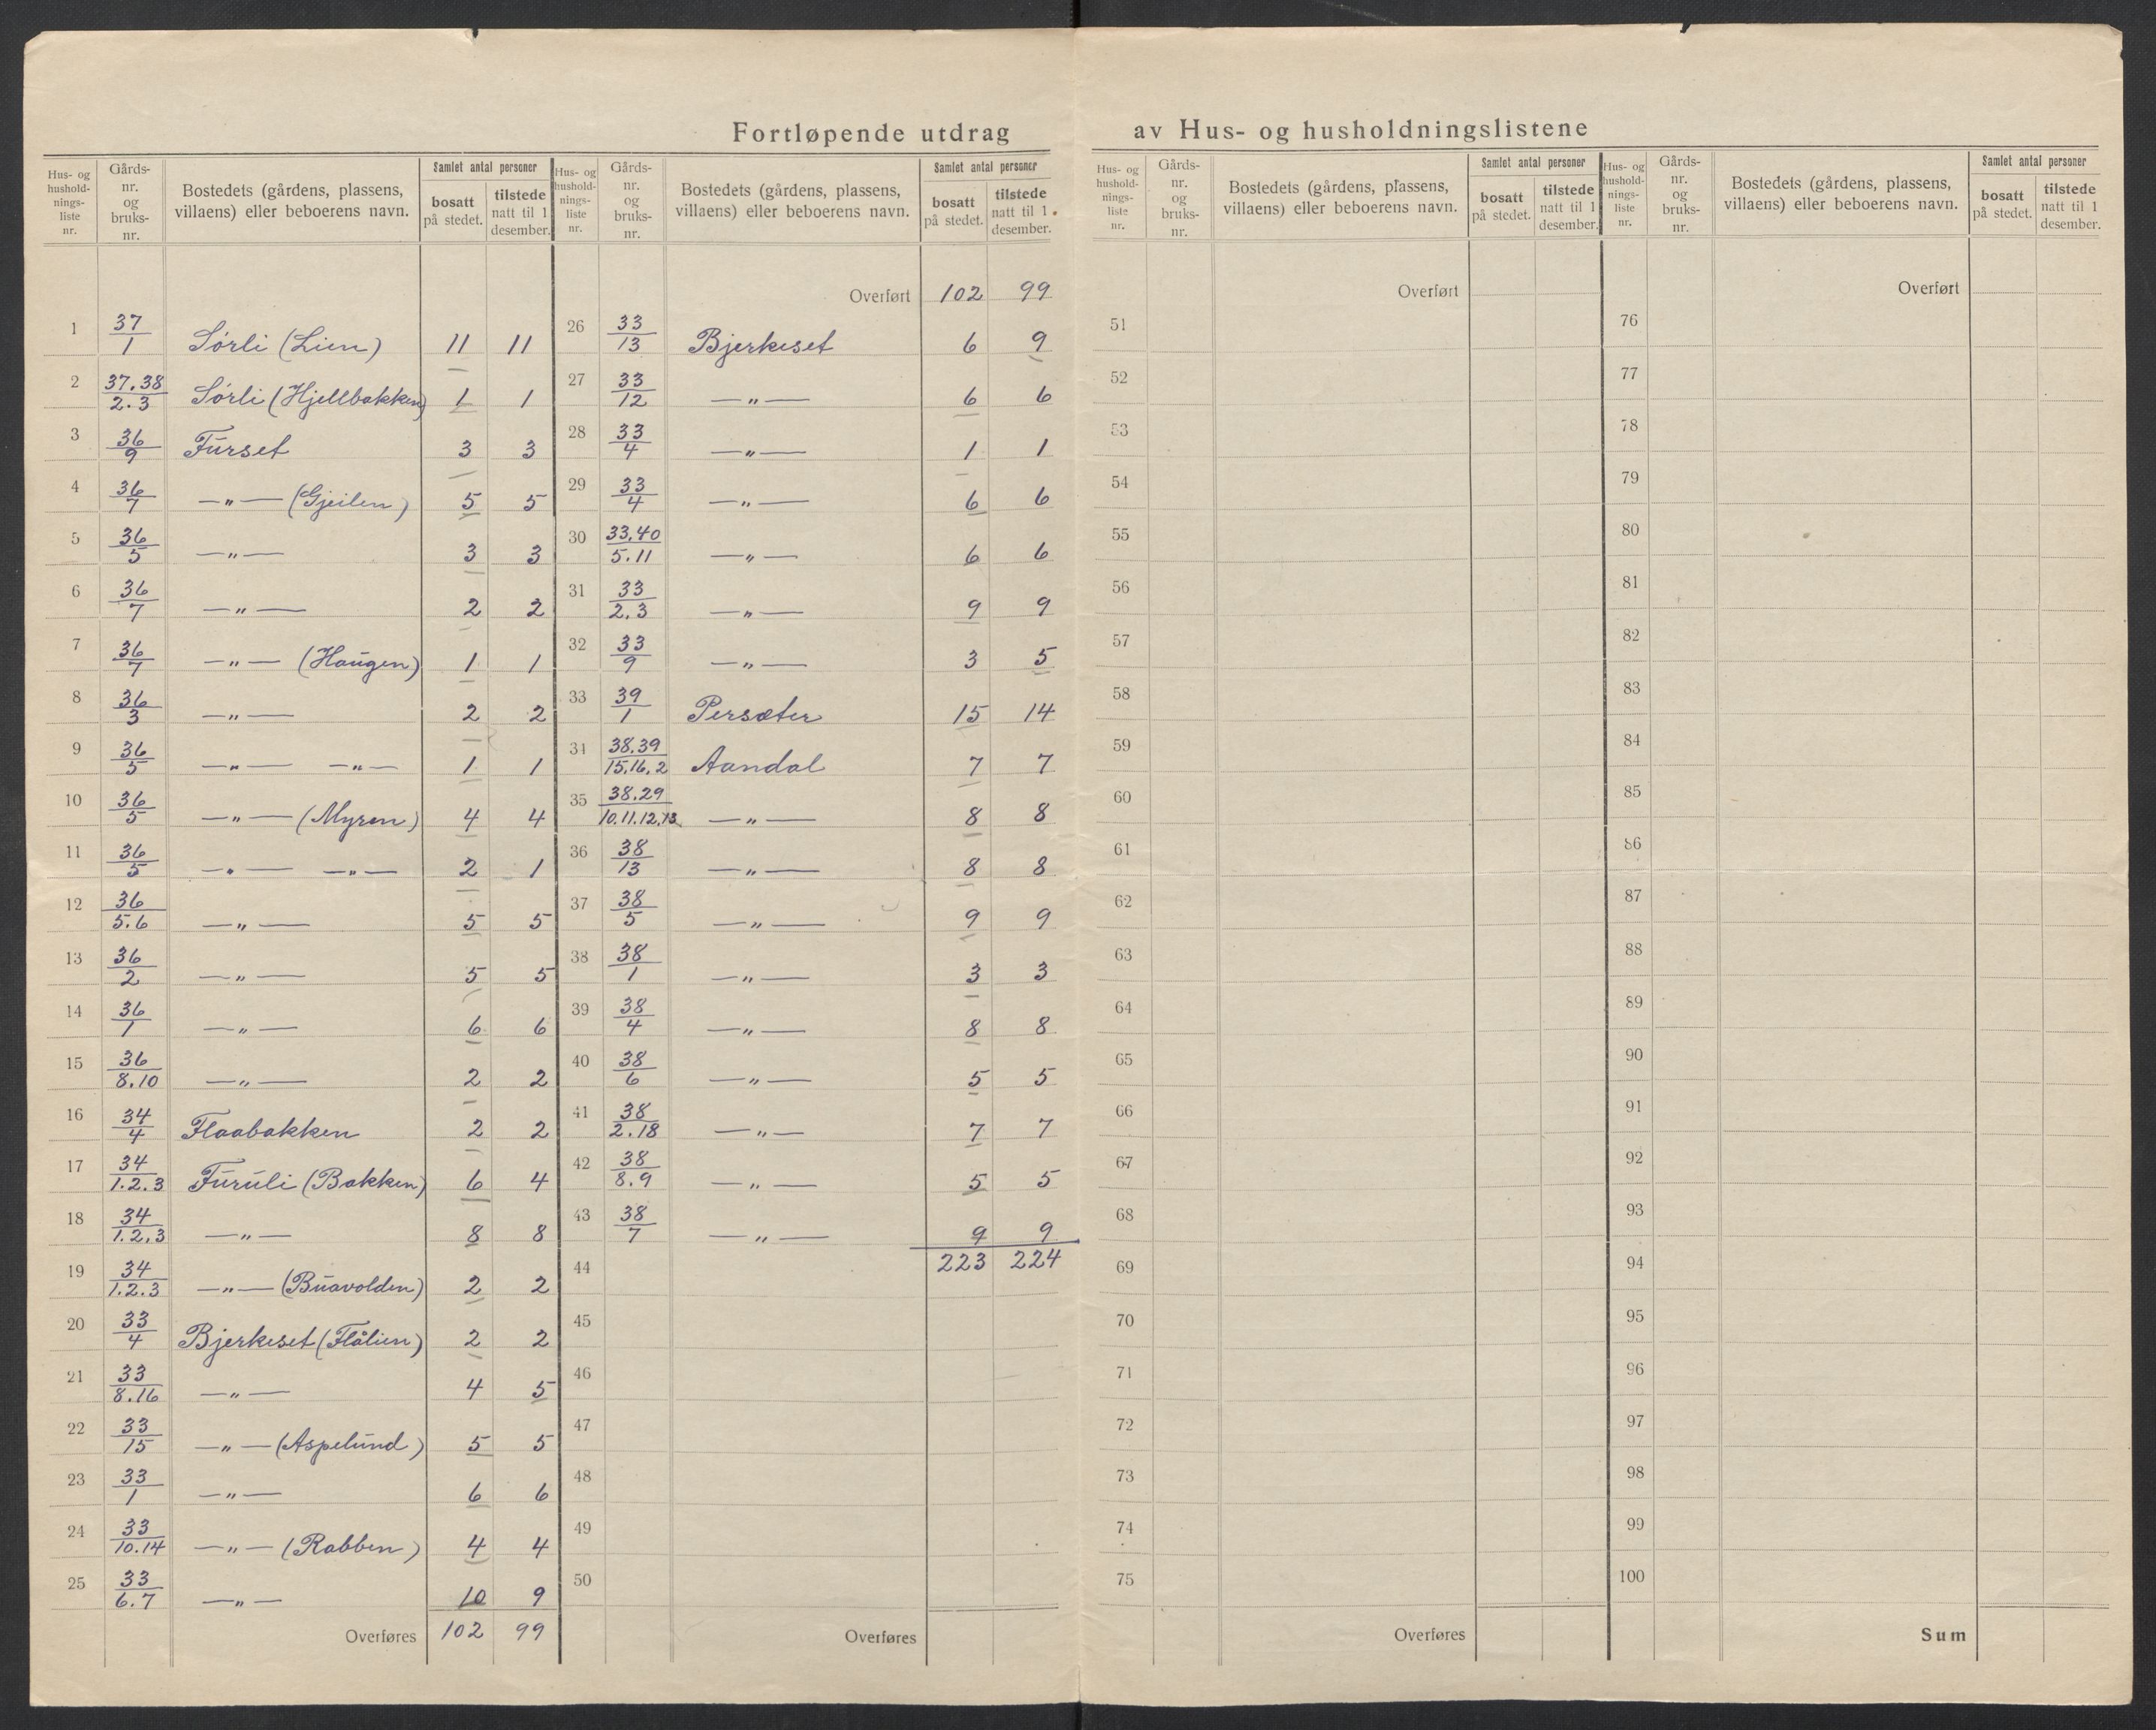 Fortløpende utdrag av Hus- og husholdningslistene
Hus- og hushold-nings-liste nr. | Gårds-nr. og bruks-nr. | Bostedets (gårdens, plassens, villaens) eller beboerens navn. | Samlet antal personer | bosatt på stedet. | tilstede natt til 1 desember.
1 37/1 Sørli (Lien) 11 11
2 37.38/2.3 Sørli (Hjellbakken) 1 1
3 36/9 Furset 3 3
4 36/7 —„— (Gjeilen) 5 5
5 36/5 —„— 3 3
6 36/7 —„— 2 2
7 36/7 —„— (Haugen) 1 1
8 36/3 —„— 2 2
9 36/5 —„— —„— 1 1
10 36/5 —„— (Myren) 4 4
11 36/5 —„— —„— 2 1
12 36/5.6 —„— 5 5
13 36/2 —„— 5 5
14 36/1 —„— 6 6
15 36/8.10 —„— 2 2
16 34/4 Flaabakken 2 2
17 34/1.2.3 Furuli (Bakken) 6 4
18 34/1.2.3 —„— 8 8
19 34/1.2.3 —„— (Buavolden) 2 2
20 33/4 Bjerkeset (Flålien) 2 2
21 33/8.16 —„— 4 5
22 33/15 —„— (Aspelund) 5 5
23 33/1 —„— 6 6
24 33/10.14 —„— (Rabben) 4 4
25 33/6.7 —„— 10 9
Overføres 102 99
Hus- og hushold-nings-liste nr. | Gårds-nr. og bruks-nr. | Bostedets (gårdens, plassens, villaens) eller beboerens navn. | Samlet antal personer | bosatt på stedet. | tilstede natt til 1 desember.
Overført 102 99
26 33/13 Bjerkeset 6 9
27 33/12 —„— 6 6
28 33/4 —„— 1 1
29 33/4 —„— 6 6
30 33.40/5.11 —„— 6 6
31 33/2.3 —„— 9 9
32 33/9 —„— 3 5
33 39/1 Persæter 15 14
34 38.39/15.16.2 Aandal 7 7
35 38.29/10.11.12.13 —„— 8 8
36 38/13 —„— 8 8
37 38/5 —„— 9 9
38 38/1 —„— 3 3
39 38/4 —„— 8 8
40 38/6 —„— 5 5
41 38/2.18 —„— 7 7
42 38/8.9 —„— 5 5
43 38/7 —„— 9 9
44 223 224
45
46
47
48
49
50
Overføres
Hus- og hushold-nings-liste nr. | Gårds-nr. og bruks-nr. | Bostedets (gårdens, plassens, villaens) eller beboerens navn. | Samlet antal personer | bosatt på stedet. | tilstede natt til 1 desember.
Overført
51
52
53
54
55
56
57
58
59
60
61
62
63
64
65
66
67
68
69
70
71
72
73
74
75
Overføres
Hus- og hushold-nings-liste nr. | Gårds-nr. og bruks-nr. | Bostedets (gårdens, plassens, villaens) eller beboerens navn. | Samlet antal personer | bosatt på stedet. | tilstede natt til 1 desember.
Overført
76
77
78
79
80
81
82
83
84
85
86
87
88
89
90
91
92
93
94
95
96
97
98
99
100
Sum